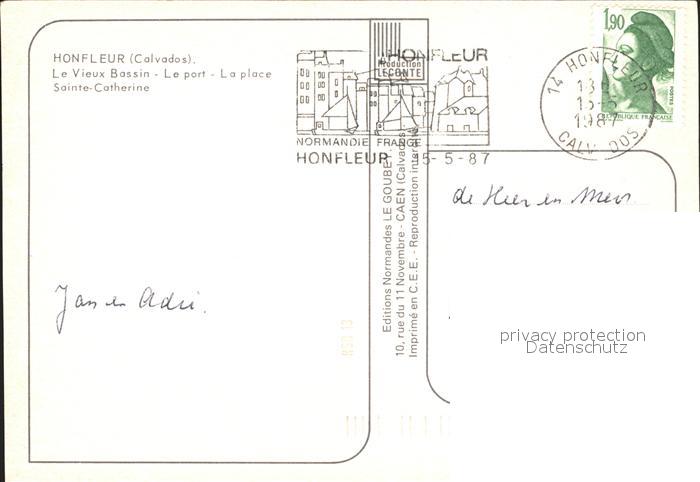 HONFLEUR (Calvados).
Le Vieux Bassin - Le port - La place
Sainte-Catherine
Production
LECONTE
HONFLEUR
NORMANDIE FRANCE
HONFLEUR 15-5-87
14 HONFLEUR
18H
15-5
1987
CALVADOS
1,90
POSTES
REPUBLIQUE FRANÇAISE
de Heer en Mevr.
Jan en Adri.
Editions Normandes LE GOUBEY
10, rue du 11 Novembre - CAEN (Calvados)
Imprimé en C.E.E. - Reproduction interdite
privacy protection
Datenschutz